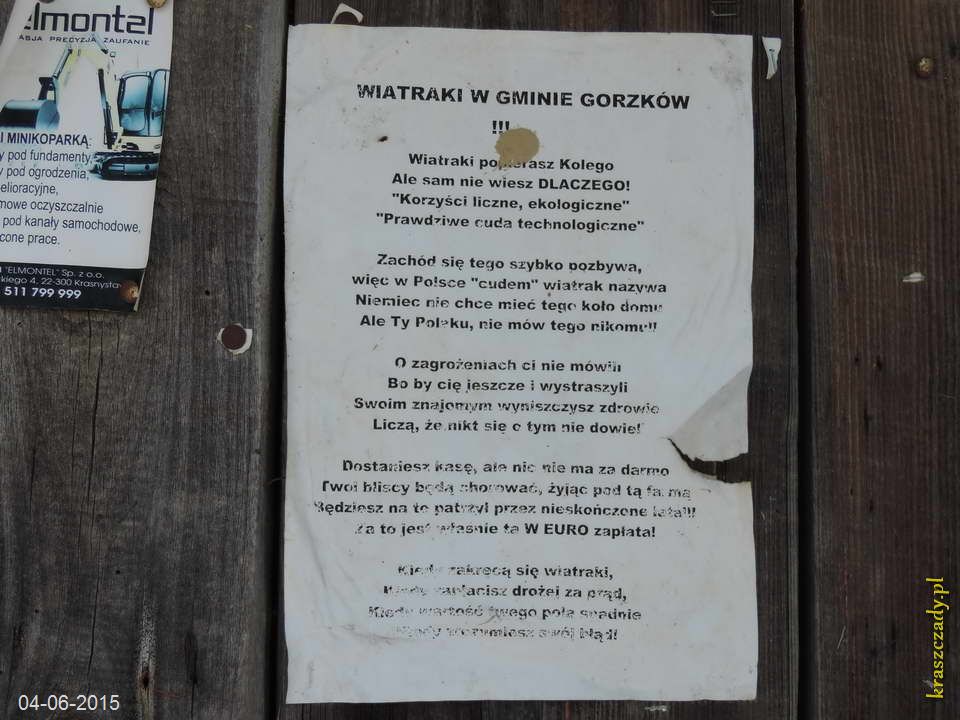 elmontel
ASJA PRECYZJA ZAUFANIE
I MINIKOPARKĄ:
y pod fundamenty,
y pod ogrodzenia,
elioracyjne,
mowe oczyszczalnie
pod kanały samochodowe,
cone prace.
"ELMONTEL" Sp. z o.o.
kiego 4, 22-300 Krasnystaw
511 799 999
WIATRAKI W GMINIE GORZKÓW
!!!
Wiatraki popierasz Kolego
Ale sam nie wiesz DLACZEGO!
"Korzyści liczne, ekologiczne"
"Prawdziwe cuda technologiczne"
Zachód się tego szybko pozbywa,
więc w Polsce "cudem" wiatrak nazywa
Niemiec nie chce mieć tego koło domu
Ale Ty Polaku, nie mów tego nikomu!!
O zagrożeniach ci nie mówili
Bo by cię jeszcze i wystraszyli
Swoim znajomym wyniszczysz zdrowie
Liczą, że nikt się o tym nie dowie!
Dostaniesz kasę, ale nic nie ma za darmo
Twoi bliscy będą chorować, żyjąc pod tą farmą
Będziesz na to patrzył przez nieskończone lata!!!
Za to jest właśnie ta W EURO zapłata!
Kiedy zakręcą się wiatraki,
Kiedy zapłacisz drożej za prąd,
Kiedy wartość twego pola spadnie
Kiedy zrozumiesz swój błąd!
04-06-2015
kraszczady.pl